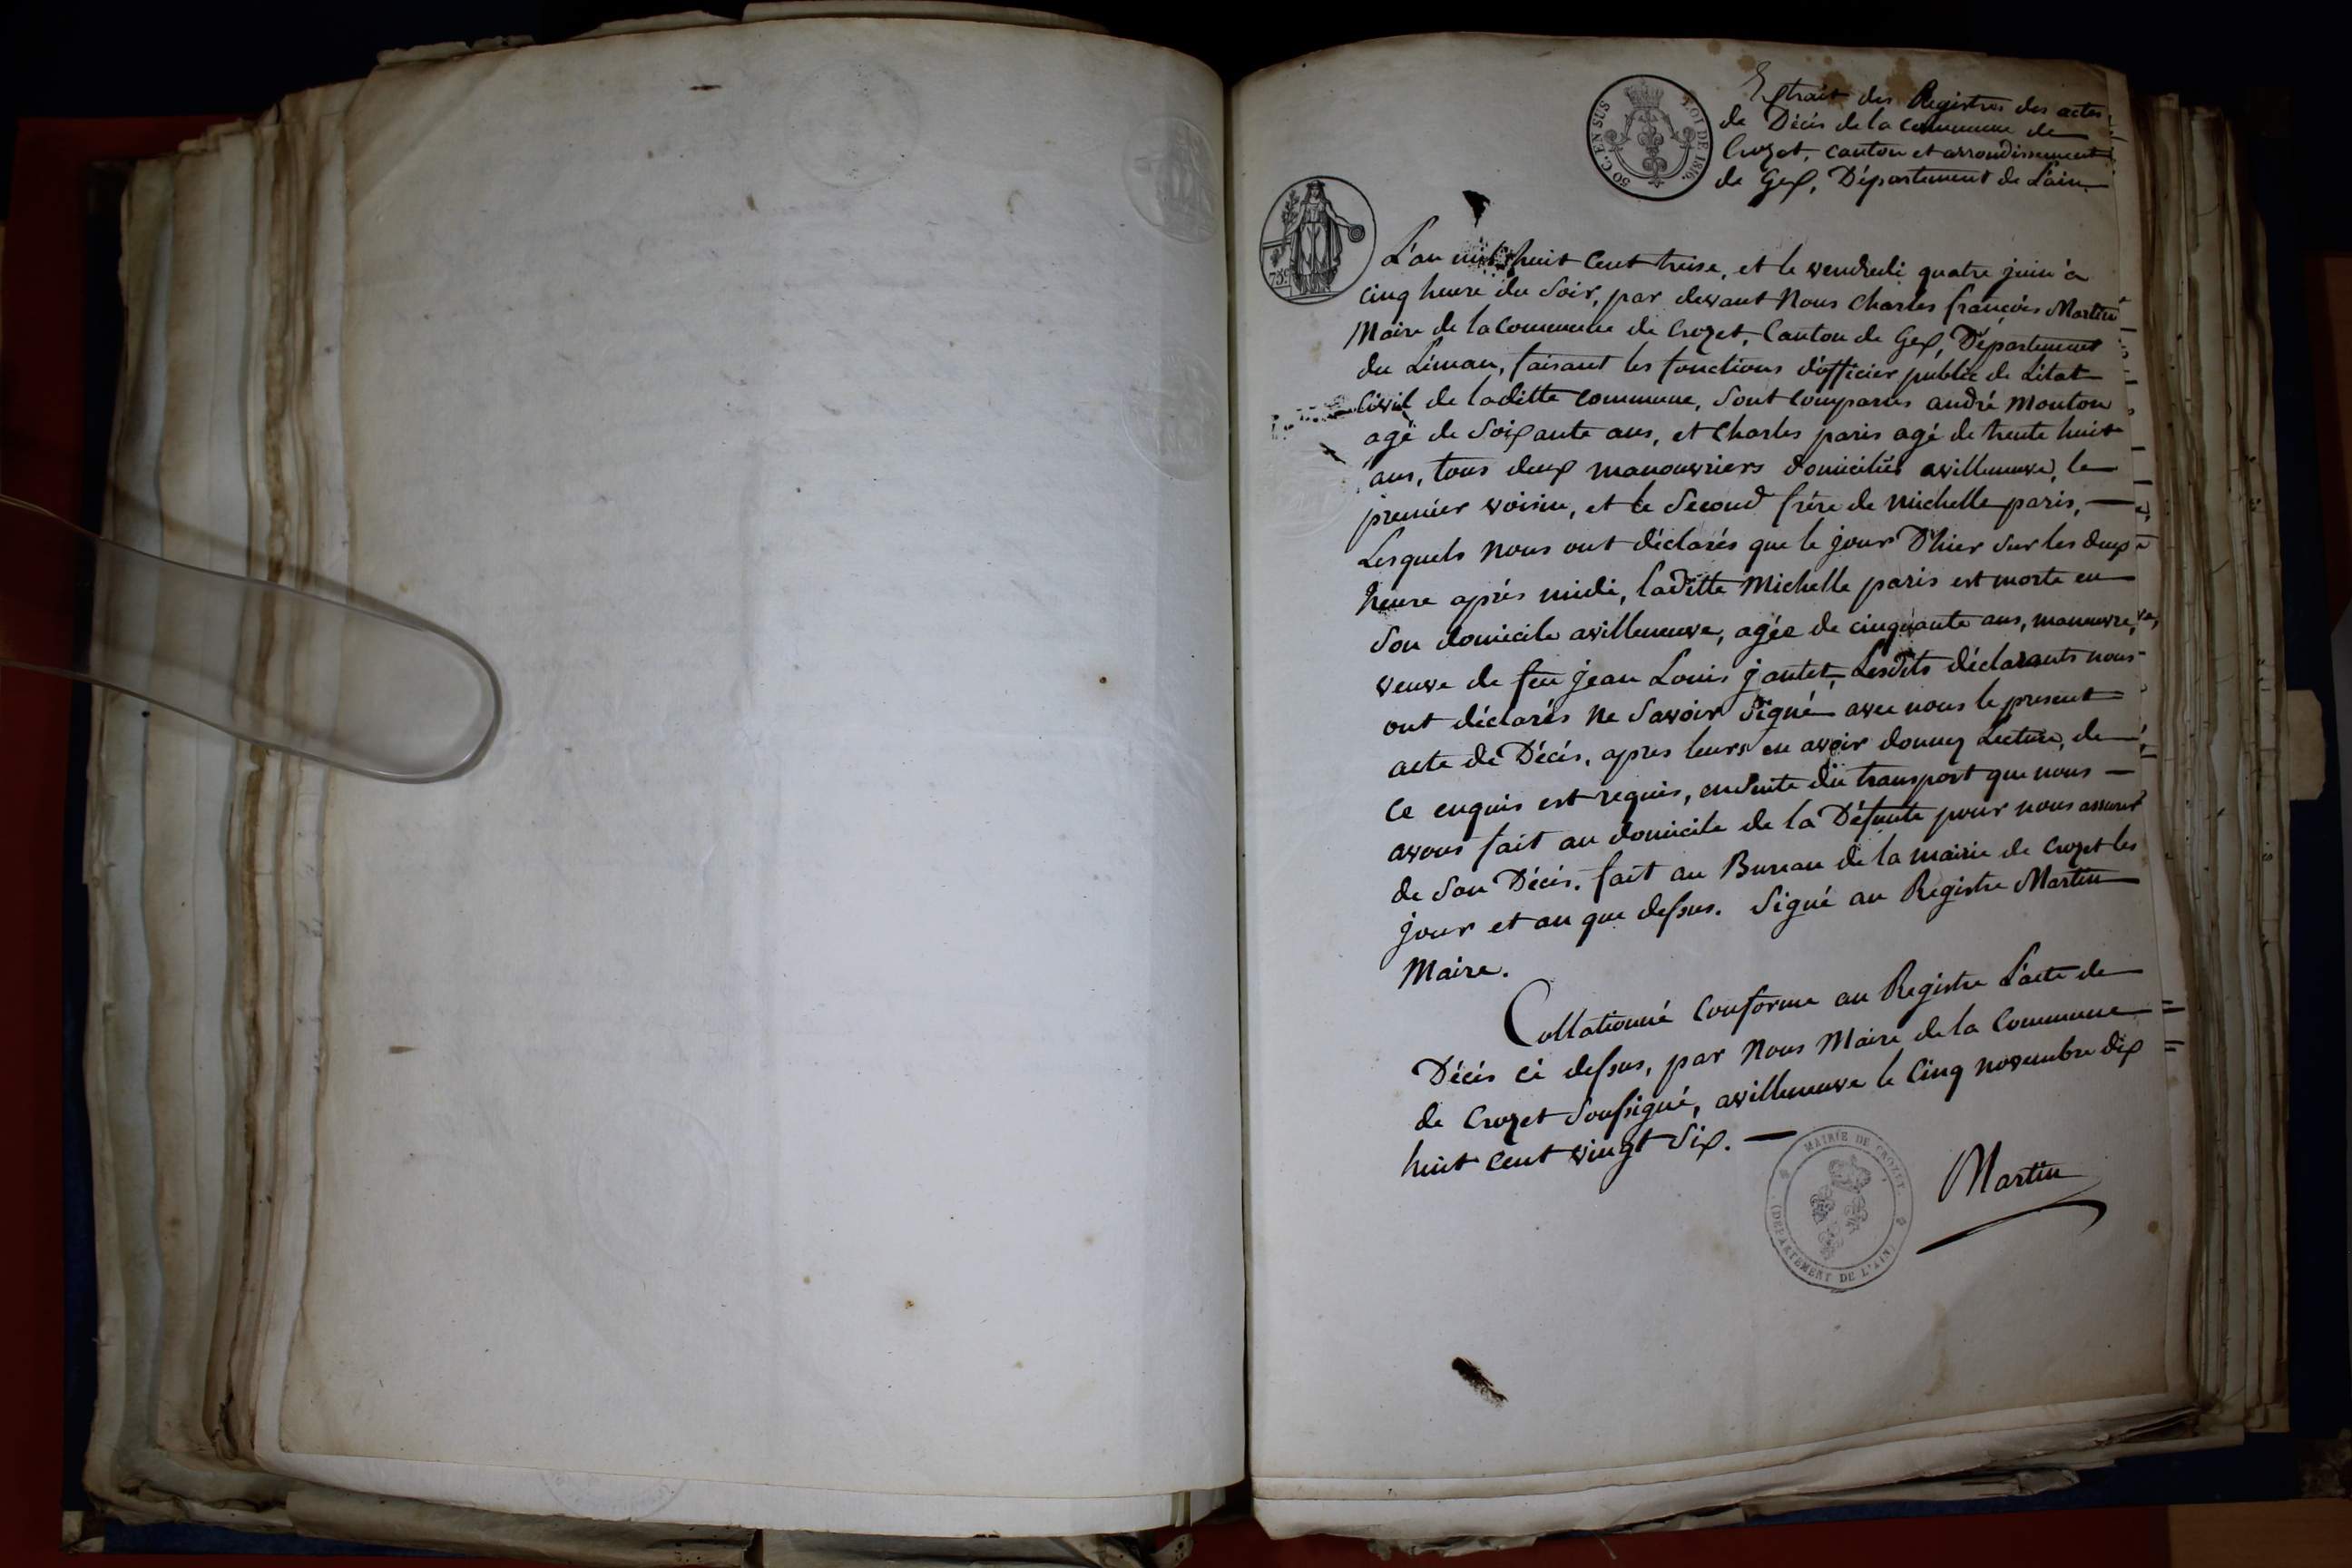 Extrait des Registres des actes
de Décès de la commune de
Crozet, canton et arrondissement
de Gex, Département de L'ain.
50 C. EN SUS
LOI DE 1816.
75c
L'an mil huit Cent treise, et le vendredi quatre juin à
cinq heure du Soir, par devant Nous Charles françois Martin
Maire de la Commune de Crozet, Canton de Gex, Département
du Léman, faisant les fonctions d'officier public de L'état
Civil de laditte commune, Sont comparus andré Mouton
agé de Soixante ans, et Charles paris agé de trente huit
ans, tous deux manouvriers domiciliés avilleneuve, le
premier voisin, et le Second frère de Michelle paris,
Lesquels Nous ont déclarés que le jour D'hier Sur les deux
heure après midi, laditte Michelle paris est morte en
Son domicile avilleneuve, agée de cinquante ans, manouvre,
veuve de feu jean Louis jantet, Lesdits déclarants nous
ont déclarés ne Savoir Signé avec nous le present
acte de Décès, apres leurs en avoir donnez Lecture, de
Ce enquis est requis, ensuite du transport que nous
avons fait au domicile de la Défunte pour nous assurer
de Son Décès. fait au Bureau de la mairie de Crozet les
jour et an que dessus. Signé au Registre Martin
Maire.
Collationné Conforme au Registre L'acte de
Décès ci dessus, par Nous Maire de la Commune
de Crozet Soussigné, avilleneuve le Cinq novembre dix
huit cent vingt Six.
MAIRIE DE CROZET.
(DEPARTEMENT DE L'AIN)
Martin